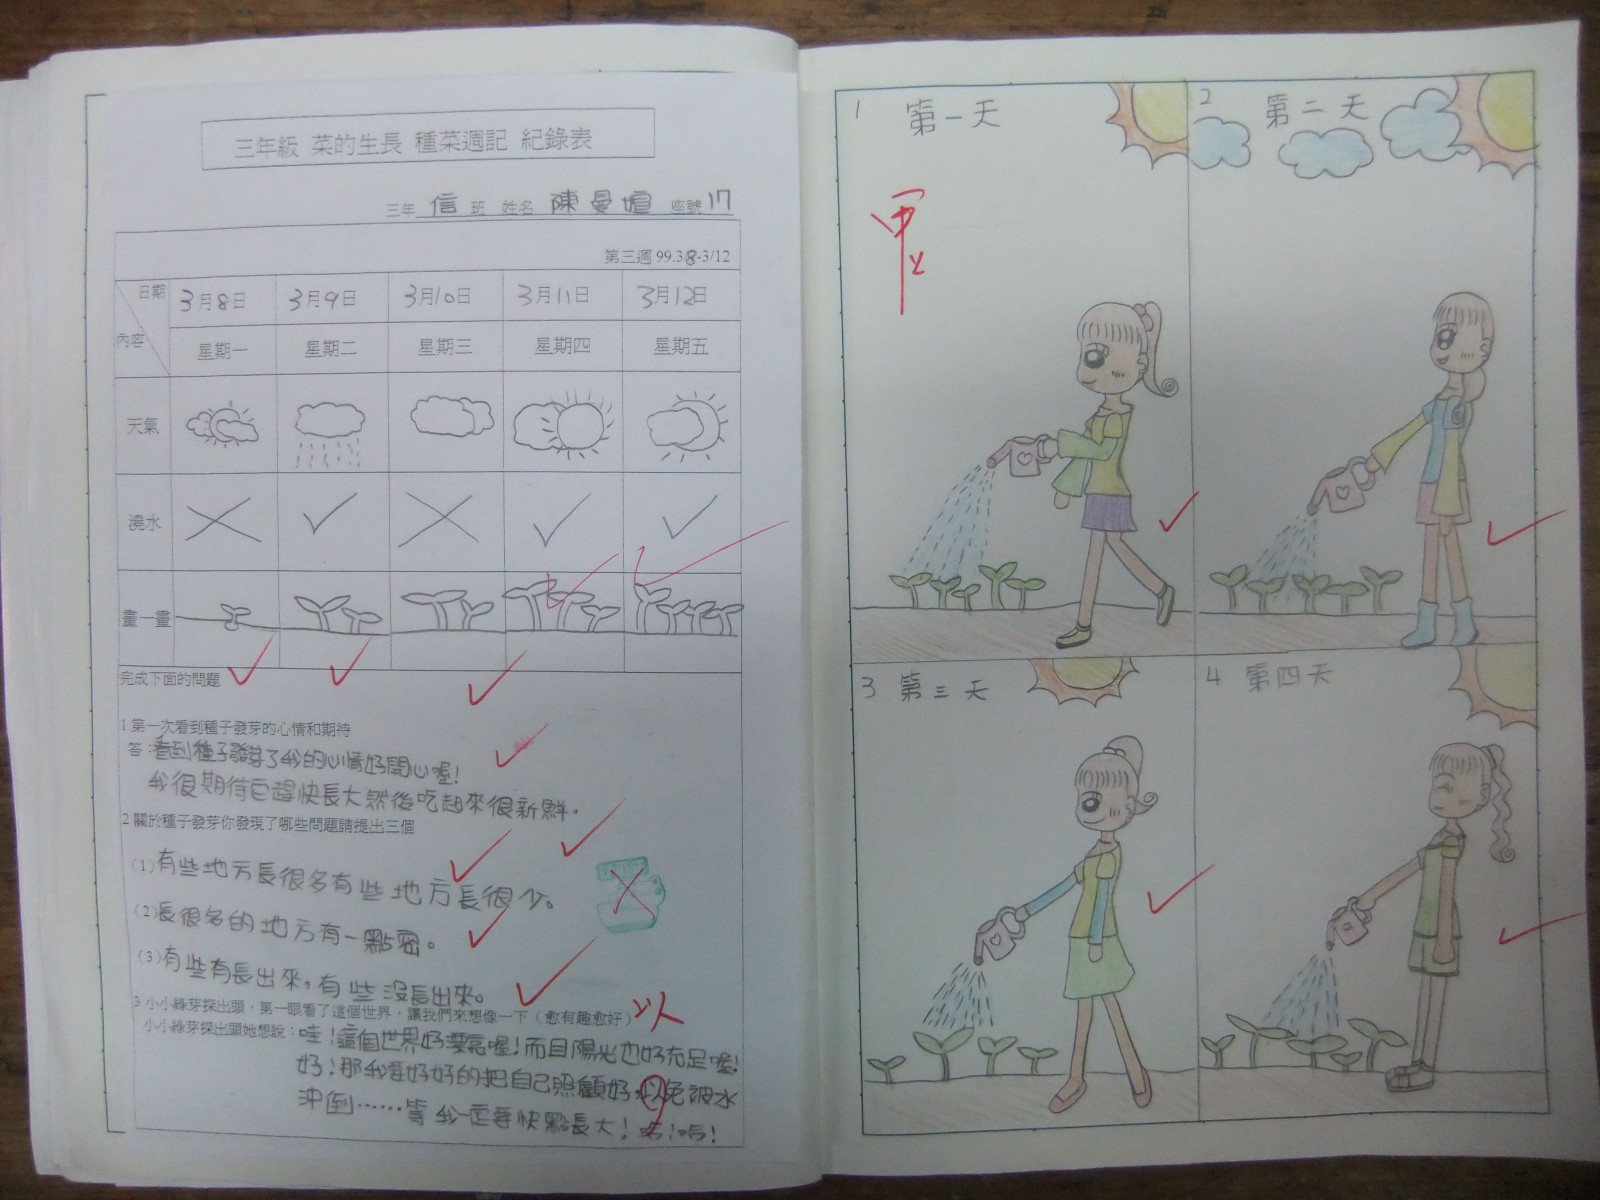 三年級 菜的生長 種菜週記 紀錄表
三年 信 班 姓名 陳曼萱 座號 17
第三週 99.3.8-3/12
日期 3月8日 3月9日 3月10日 3月11日 3月12日
內容 星期一 星期二 星期三 星期四 星期五
天氣
澆水
畫一畫
完成下面的問題
1 第一次看到種子發芽的心情和期待
答:看到種子發芽了我的心情好開心喔!
我很期待它趕快長大然後吃起來很新鮮。
2 關於種子發芽你發現了哪些問題請提出三個
(1)有些地方長很多有些地方長很少。
(2)長很多的地方有一點密。
(3)有些有長出來,有些沒長出來。
3 小小綠芽探出頭,第一眼看了這個世界,讓我們來想像一下(愈有趣愈好)
以
小小綠芽探出頭她想說:哇!這個世界好漂亮喔!而且陽光也好充足喔!
好!那我要好好的把自己照顧好,以免被水
沖倒……等我一定要快點長大!
1 第一天
甲上
2 第二天
3 第三天
4 第四天